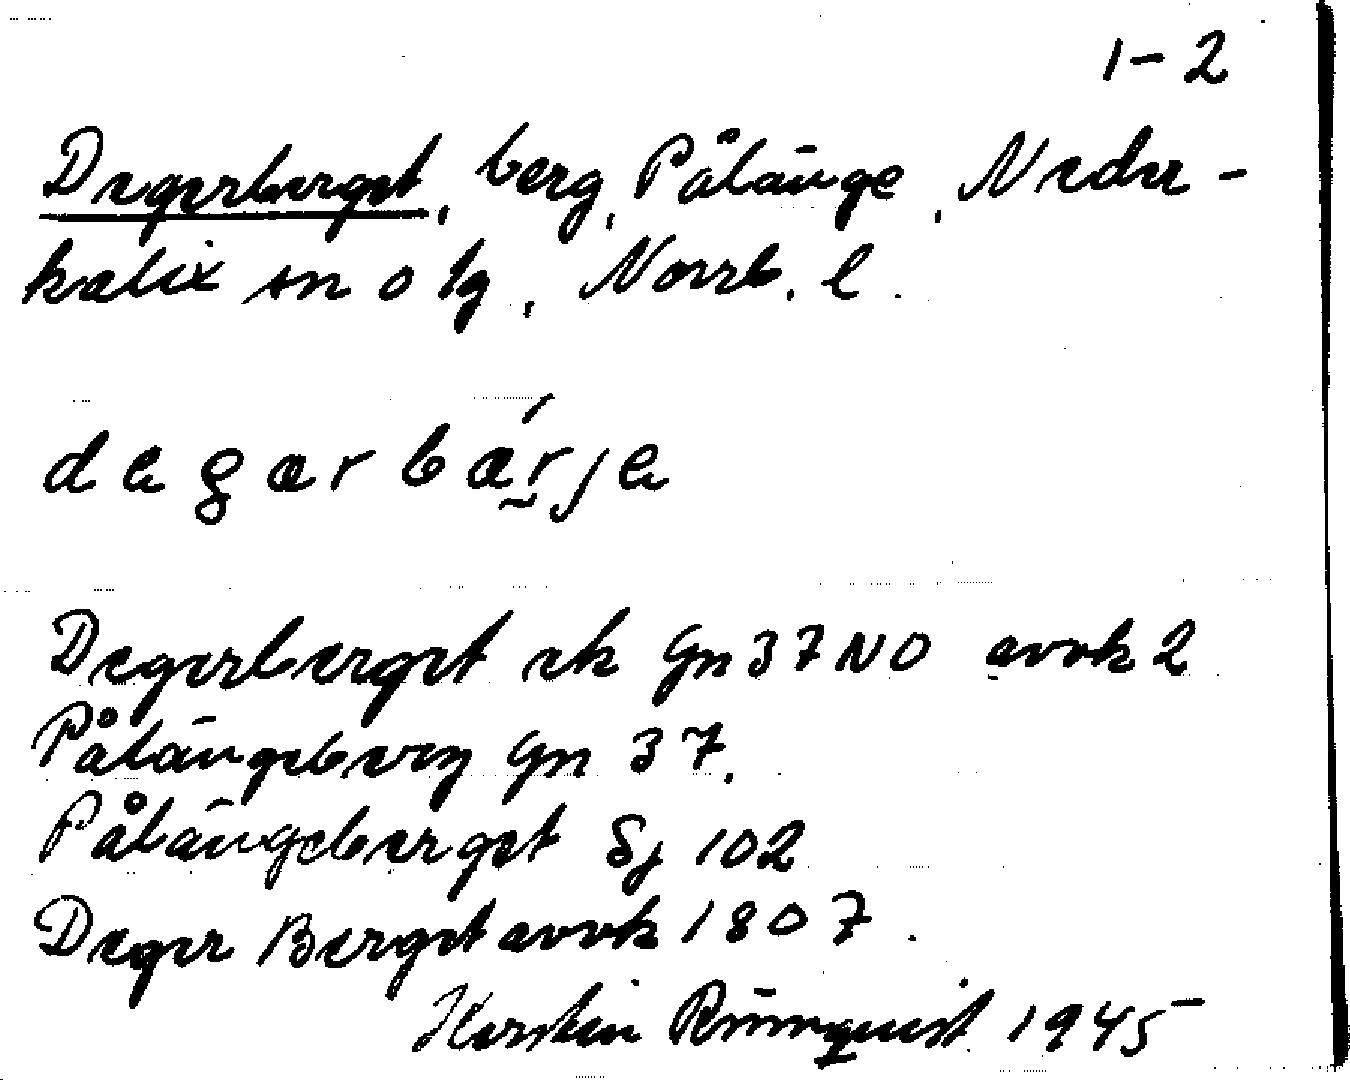 1-2
Degerberget, berg, Pålänge, Neder-
kalix sn o tg, Norrb. l.
degarbárje
Degerberget ek Gn 37 NO avvk 2
Pålängeberg Gn 37.
Pålängeberget Sj 102
Deger Berget avvk 1807.
Kerstin Rönnquist 1945